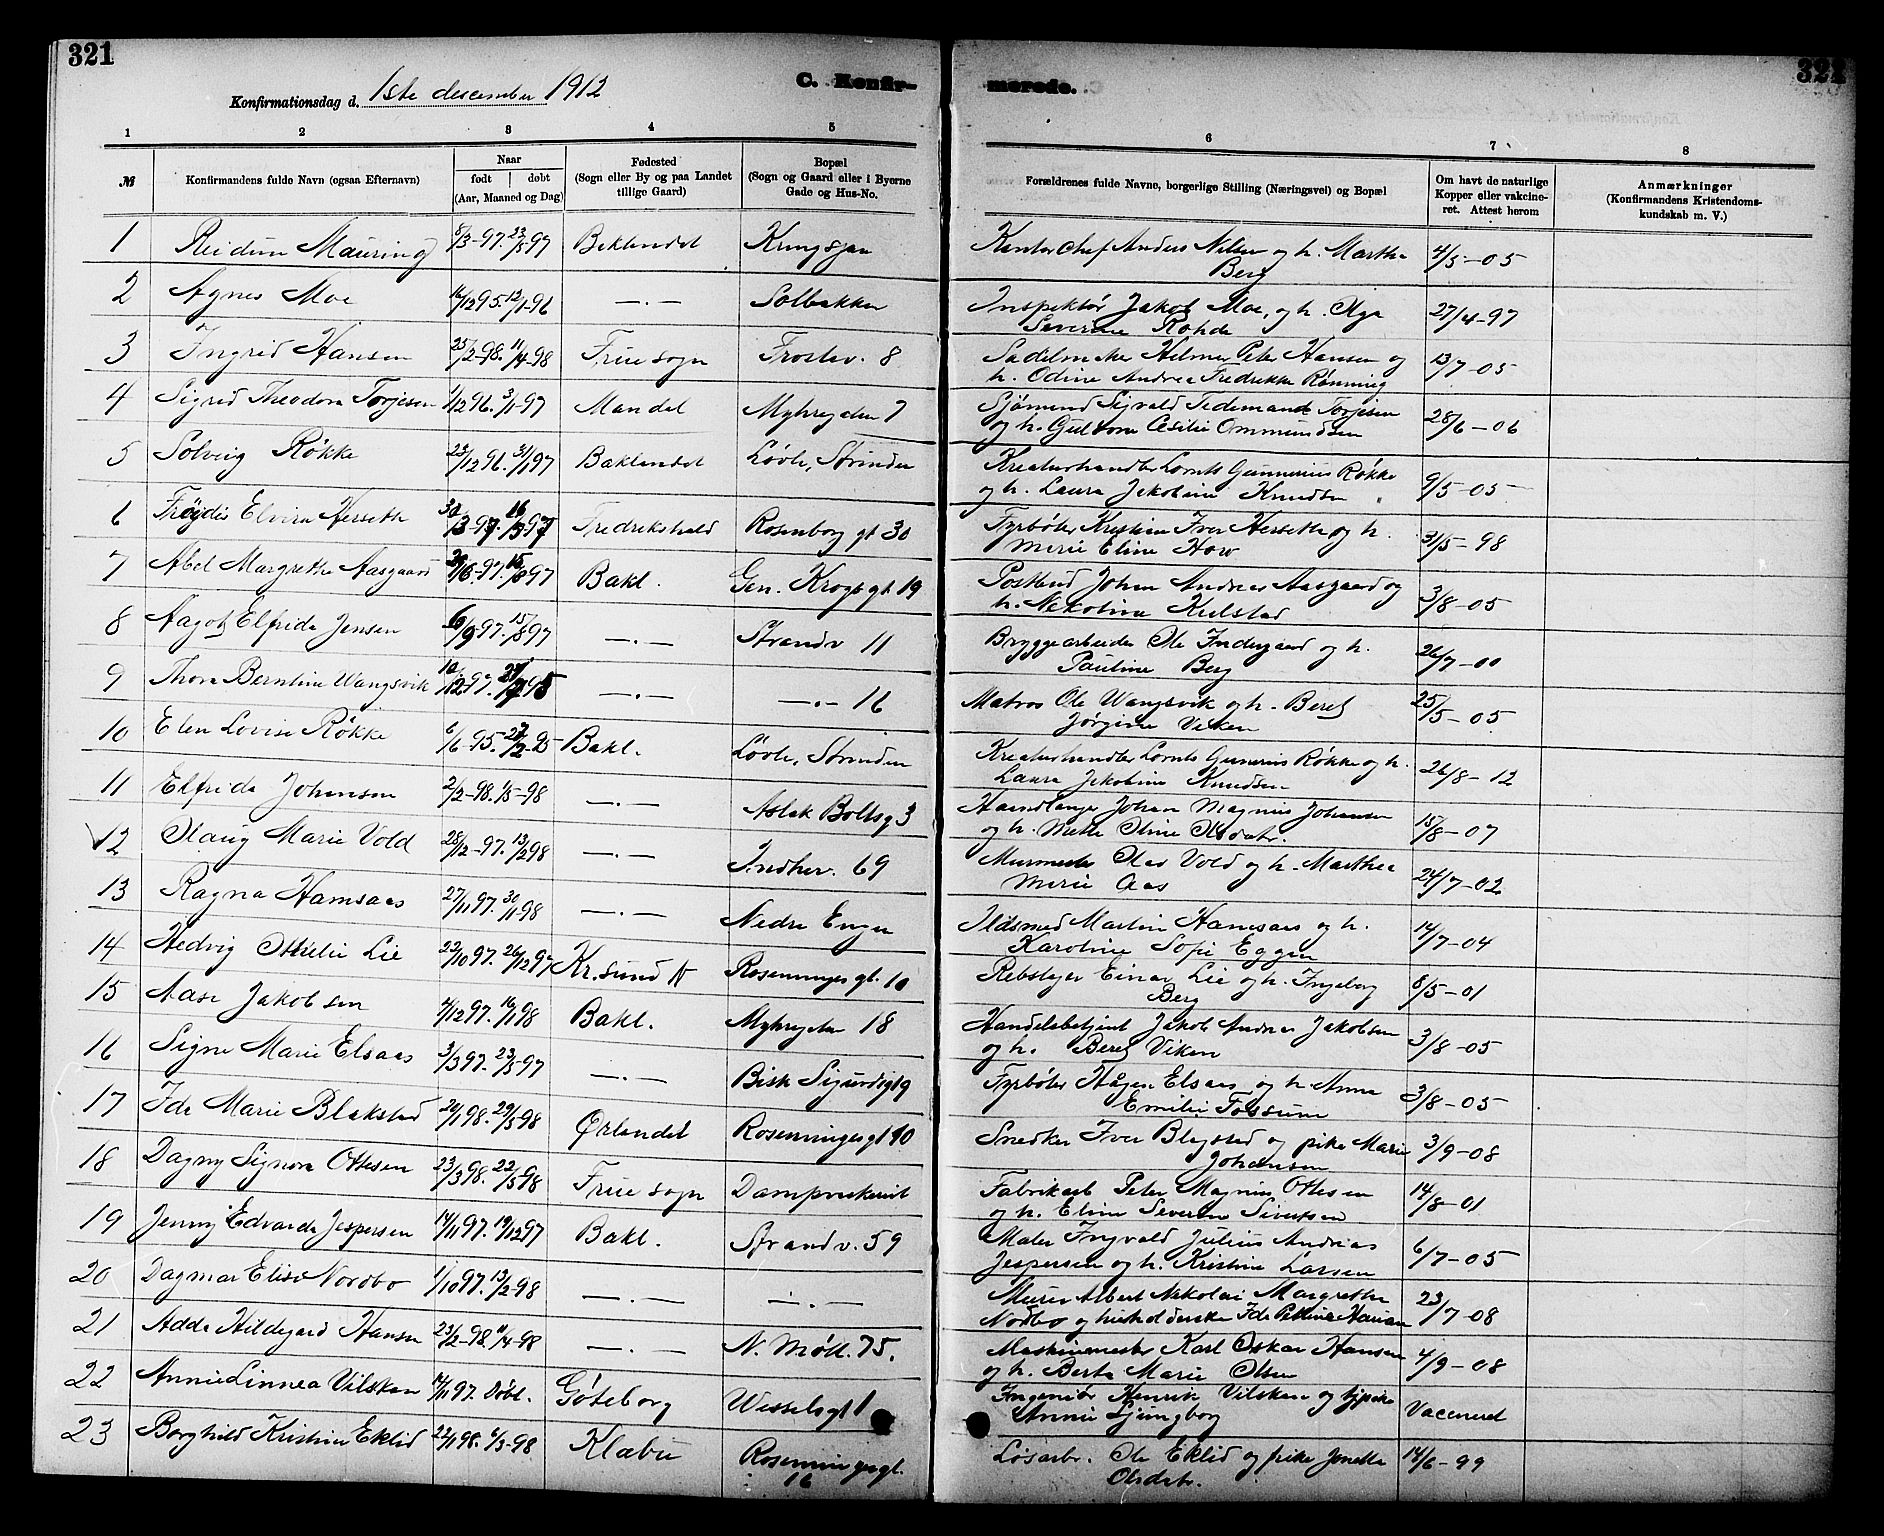 321
Konfirmationsdag d. 1ste desember 1912
C. Konfir-
1 2 3 4 5
№ Konfirmandens fulde Navn (ogsaa Efternavn) Naar født døbt (Aar, Maaned og Dag) Fødested (Sogn eller By og paa Landet tillige Gaard) Bopæl (Sogn og Gaard eller i Byerne Gade og Hus-No.
1 Reidun Mauring 97. 97 Baklandet
2 Agnes Moe 16/12 95. 12/1-96 —.— Solbakken
3 Ingrid Hansen 25/2-98. 11/4-98 Frue sogn Frostev. 8
4 Sigrid Theodora Torjesen 1/12 96. 3/1-97 Mandal 7
5 Solveig Røkke 23/12 96. 31/1 97 Baklandet Løvli, Strinden
6 Frøydis Elvira Herseth 30/3-97. Fredrikshald Rosenborg gt 30
7 Abel Margrethe Aasgaard 97. 15/8 97 Bakl. Gen. Krogs gt. 19
8 Aagot Elfrida Jensen 97. 15/8 97 —.— Strandv 11
9 Thora Berntine Wangsvik 10/12 97. —.— —.— 16
10 Elen Lovise Røkke 6/6-95. Bakl. Løvli, Strinden
11 Elfrida Johansen 2/2-98. 1/5-98 —.— Aslak Boltsg 3
12 Olaug Marie Vold 28/12-97. 13/2 98 —.— Indher. 69
13 Ragna Hamsaas 27/11 97. 30/1-98 —.— Nedre Enger
14 Hedvig Othilie Lie 22/10 97. 26/12 97 Kr.sund N Rosenvinges gt. 10
15 Aase Jakobsen 4/12 97. 16/1 98 Bakl. 18
16 Signe Marie Elsaas 3/3 97. 23/5-97 —.— Bisk Sigurdsgt 9
17 Ida Marie Blekstad 98. 29/5-98 Ørlandet Rosenvingesgt 10
18 Dagny Signora Ottesen 23/3 98. 22/5 98 Frue sogn
19 Jenny Edvarda Jespersen 14/11 97. 19/12 97 Bakl. Strandv. 59
20 Dagmar Elise Nordbo 1/10 97. 13/2-98 —.— —.—
21 Adda Hildegard Hansen 23/2-98. 11/4-98 —.— N. Møll. 75.
22 Annie Linnea Vilskan 14/11 97. Døbt. Göteborg Wesselsgt 1
23 Borghild Kristine Eklid 22/1 98. 6/3-98 Klæbu Rosenvingesgt.
16
321
merede.
6 7 8
Forældrenes fulde Navne, borgerlige Stilling (Næringsvei) og Bopæl Om havt de naturlige Kopper eller vakcineret. Attest herom Anmærkninger (Konfirmandens Kristendomskundskab m. V.)
Kontorchef Anders Nilsen og h. Martha 4/5-05
Berg
Inspektør Jakob Moe, og h. Olga 27/4-97
Severine Rohde
Sadelmaker Hilmer Peter Hansen og 13/7-05
h. Odine Andrea Fredrikke Rønning
Sjømand Sigvald Tidemand Torjesen 28/6-06
og h. Gulborg Cesilie Ommundsen
Kreaturhandler Lornts Gunnerius Røkke 9/5-05
og h. Laura Jekobine Knudsen
Fyrbøter Kristian Iver Herseth og h. 31/5-98
Marie Eline How
Postbud Johan Andreas Aasgaard og 3/8-05
h. Nikoline Kielstad
Bryggearbeider Ole Indergaard og h. 26/7-00
Pauline Berg
Matros Ole Wangsvik og h. Beret 25/5-05
Jørgine Viken
Kreaturhandler Lornts Gunerius Røkke og h. 26/8-12
Laura Jekobine Knudsen
Haandlanger Johan Magnus Johansen 15/8-07
og h. Mette Oline Olsdatr.
Murmester Olav Vold og h. Marthea 24/7-02
Marie Aas
Ildsmed Martin Hamsaas og h. 14/7-04
Karoline Sofie Eggen
Rebslager Einar Lie og h. Ingeborg 8/5-01
Berg
Handelsbetjent Jakob Andreas Jakobsen 3/8-05
og h. Beret Viken
Fyrbøter Hågen Elsaas og h. Anna 3/8-05
Emilie Fossum
Snedker Iver Blegstad og pike Marie 3/9-08
Johansen
Fabrikarb Peter Magnus Ottesen 14/8-01
og h. Eline Severine Sivertsen
Maler Ingvald Julius Andreas 6/7-05
Jespersen og h. Kristine Larsen
Murer Albert Nikolai Margretha 23/7-08
Nordbo og husholderske Ida Petrine Hansen
Maskinmester Karl Oskar Hansen 4/9-08
og h. Berta Marie Olsen
Ingeniør Henrik Vilskan og tjpike Vaccineret
Annie Ljungborg
Løsarbr. Ole Eklid og pike Jonetta 14/6-99
Olsdatr.